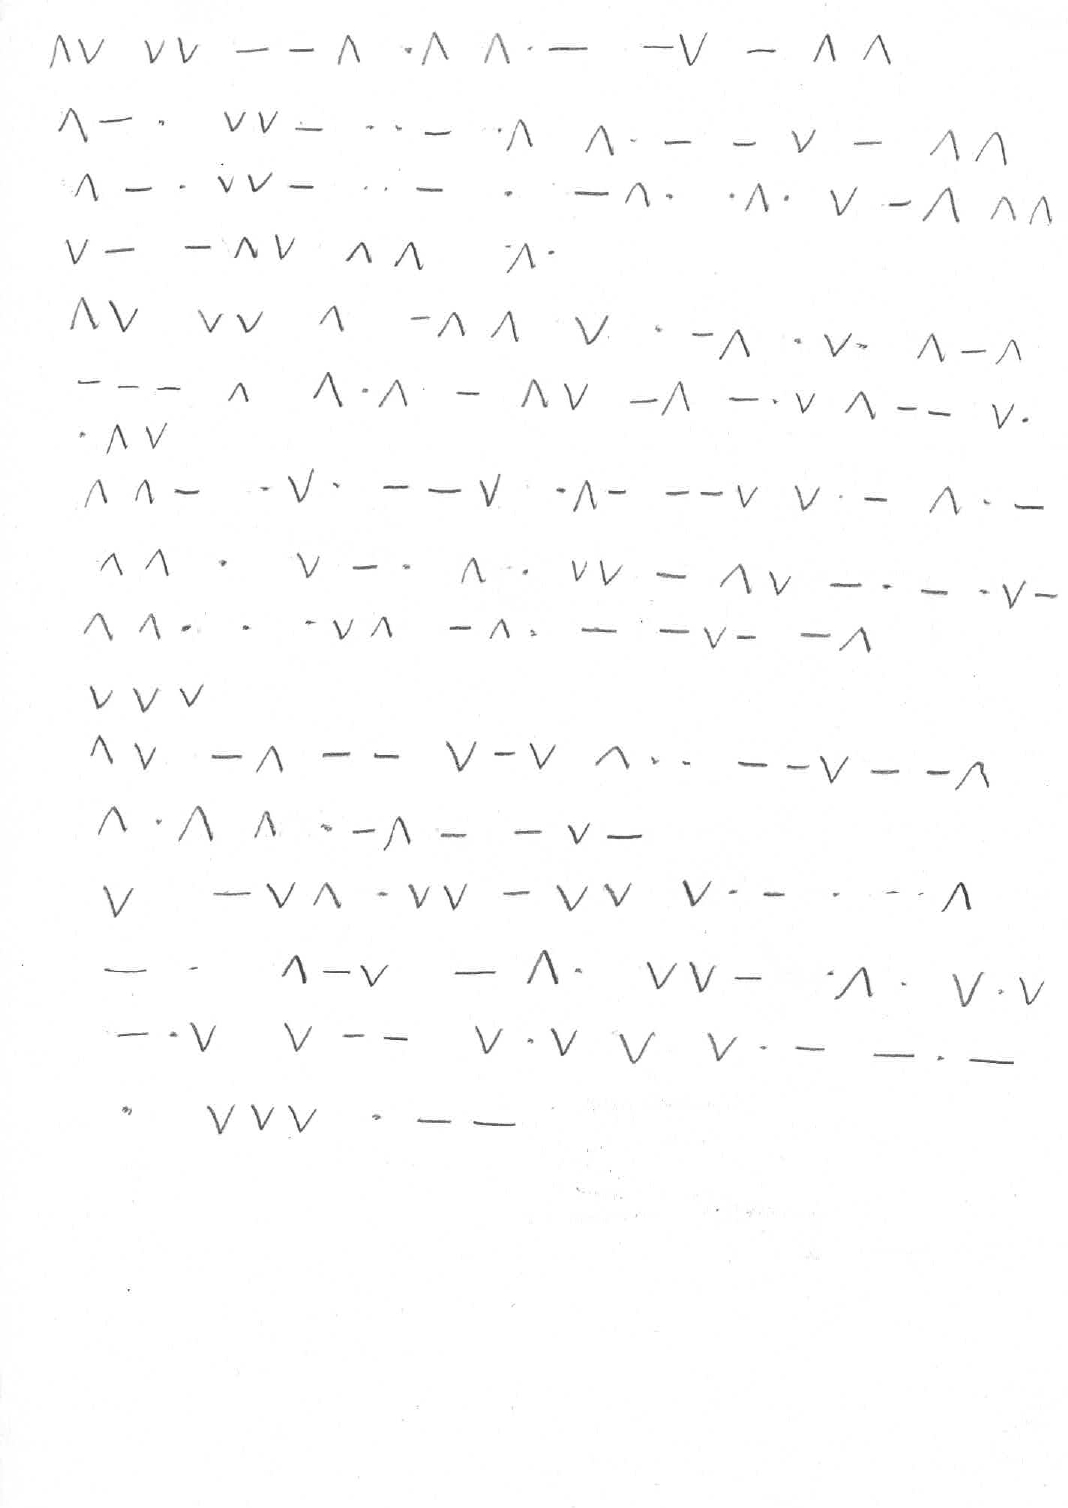 Λ V V V — — Λ · Λ Λ · — — V — Λ Λ
Λ — · V V — · · — · Λ Λ · — — V — Λ Λ
Λ — · V V — · · — · — Λ · · Λ · V — Λ Λ Λ
V — — Λ V Λ Λ · Λ ·
Λ V V V Λ — Λ Λ V · — Λ · V · Λ — Λ
— — — Λ Λ · Λ — Λ V — Λ — · V Λ — — V ·
· Λ V
Λ Λ — · V · — — V · Λ — — — V V · — Λ · —
Λ Λ · V — · Λ · V V — Λ V — · — · V —
Λ Λ · · · V Λ — Λ · — — V — — Λ
V V V
Λ V — Λ — — V — V Λ · · — — V — — Λ
Λ · Λ Λ · — Λ — — V —
V — V Λ · V V — V V V · — · · · Λ
— · Λ — V — Λ · V V — · Λ · V · V
— · V V — — V · V V V · — — · —
· V V V · — —